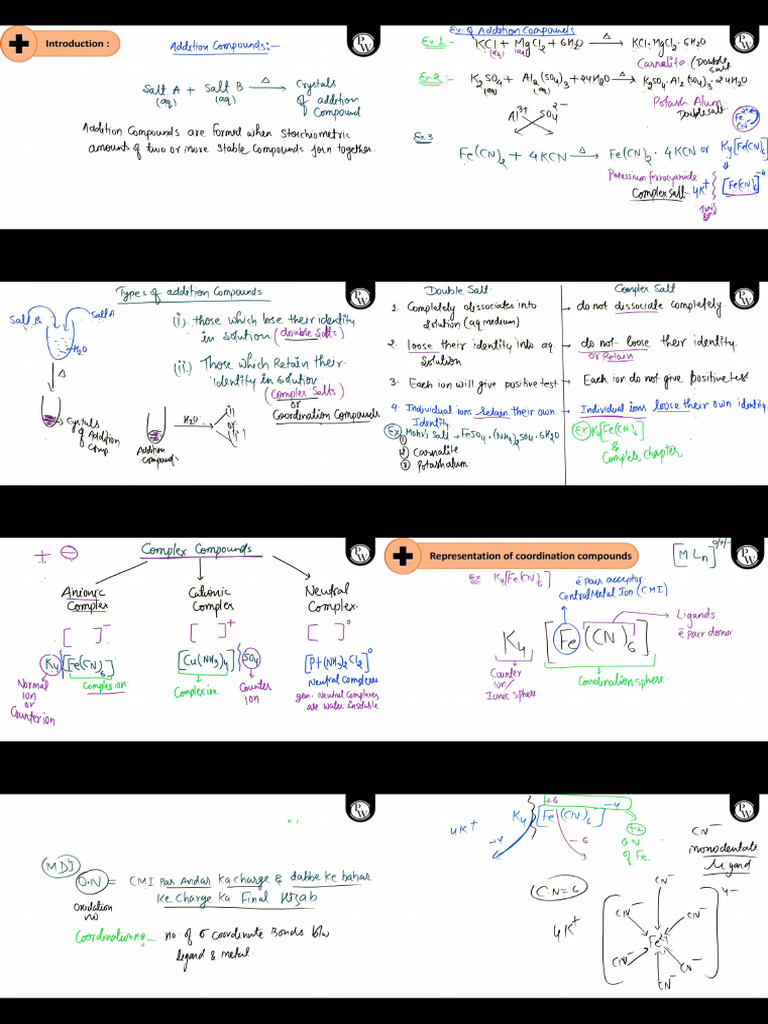 Introduction :
Addition Compounds:-
Salt A + Salt B →Δ Crystals
(aq) (aq) of addition
Compound
Addition Compounds are formed when Stoichiometric
amounts of two or more Stable Compounds join together.
PW
Ex. of Addition Compounds
Ex.1:- KCl + MgCl2 + 6H2O →Δ KCl.MgCl2.6H2O
(aq) (aq)
Carnalite (Double
Salt
Ex.2:- K2SO4 + Al2(SO4)3 + 24H2O →Δ K2SO4.Al2(SO4)3.24H2O
(aq) (aq)
Potash Alum
Double salt
Al3+ SO4 2-
Ex.3
Fe(CN)2 + 4KCN →Δ Fe(CN)2.4KCN or K4[Fe(CN)6]
Potassium ferrocyanide
Complex salt 4K+ [Fe(CN)6]-4
PW
Types of addition Compounds
Salt B Salt A
H2O
Δ
Crystals
of Addition
Comp.
(i) Those which lose their identity
in solution (double Salts)
(ii.) Those which Retain their
identity in solution
(Complex Salts)
or
Coordination Compounds
Addition
Compound
H2O
(i)
or
(ii)
PW
Double Salt
Complex Salt
1. Completely dissociates into
solution (aq medium)
→ do not dissociate completely.
2. loose their identity into aq.
Solution
→ do not loose their identity.
or Retain
3. Each ion will give positive test
→ Each ion do not give positive test
4. Individual ions retain their own
Identity.
→ Individual ions loose their own identity
Ex Mohr's Salt → FeSO4.(NH4)2SO4.6H2O
1
2 Carnalite
3 Potash alum
Ex K4[Fe(CN)6]
&
Complete chapter
PW
+ -
Complex Compounds
Anionic
Complex
Cationic
Complex
Neutral
Complex.
[ ]-
[ ]+
[ ]0
K4 [Fe(CN)6]
Complex ion
Normal
ion
or
Counter ion
[Cu(NH3)4] SO4
Complex ion
Counter
ion
[Pt(NH3)2Cl2]0
Neutral Complexes
gen. Neutral Complexes
are water insoluble
PW
Representation of coordination compounds
[MLn]0/+/-
Ex K4[Fe(CN)6]
e pair acceptor
Central Metal Ion (CMI)
Ligands
e pair donor
K4 [Fe(CN)6]
Counter
Ion/
Ionic sphere
Coordination sphere
PW
MDJ
O.N = CMI Par Andar Ka charge & dabbe ke bahar
Ke Charge Ka Final Hisab
Oxidation
no
Coordination no. - no. of σ Coordinate Bonds b/w
ligand & metal.
PW
+6
K4 [Fe(CN)6] -4
4K+
-6
+2
O.N
of Fe
CN-
monodentate
ligand
C.N = 6
4K+
CN-
CN-
CN-
Fe2+
CN-
CN-
CN-
4-